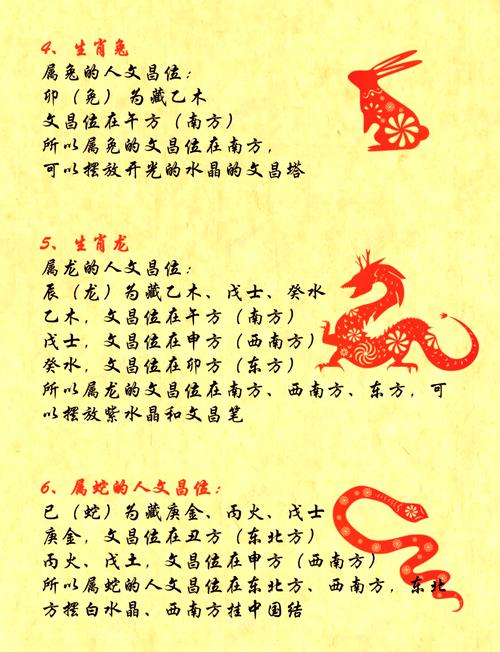 4、生肖兔
属兔的人文昌位：
卯（兔）为藏乙木
文昌位在午方（南方）
所以属兔的文昌位在南方，
可以摆放开光的水晶的文昌塔
5、生肖龙
属龙的人文昌位：
辰（龙）为藏乙木、戊士、癸水
乙木，文昌位在午方（南方）
戊士，文昌位在申方（西南方）
癸水，文昌位在卯方（东方）
所以属龙的文昌位在南方、西南方、东方，可
以摆放紫水晶和文昌笔
6、属蛇的人文昌位：
巳（蛇）为藏庚金、丙火、戊士
庚金，文昌位在丑方（东北方）
丙火、戊土，文昌位在申方（西南方）
所以属蛇的人文昌位在东北方、西南方，东北
方摆白水晶、西南方挂中国结